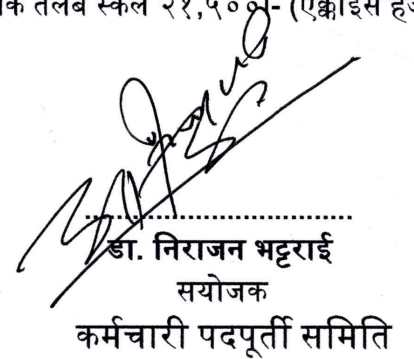 क तलब स्केल २१,५००।- (एक्काइस हज
डा. निराजन भट्टराई
सयोजक
कर्मचारी पदपूर्ती समिति